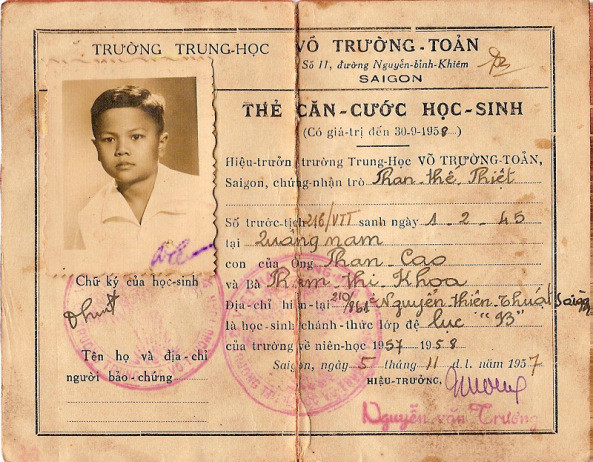 TRƯỜNG TRUNG-HỌC VÕ TRƯỜNG-TOẢN
Số 11, đường Nguyễn-bỉnh-Khiêm
SAIGON
THẺ CĂN-CƯỚC HỌC-SINH
(Có giá-trị đến 30-9-1958)
Hiệu-trưởng trường Trung-Học VÕ TRƯỜNG-TOẢN,
Saigon, chứng-nhận trò Phan thế Thiệt
Số trước-tịch 216/VTT sanh ngày 1-2-45
tại Quảng nam
con của Ông Phan Cao
và Bà Phạm thị Khoa
Địa-chỉ hiện-tại Nguyễn thiện Thuật Saigon
là học-sinh chánh-thức lớp đệ lục "B3"
của trường về niên-học 1957-1958
Saigon, ngày 5 tháng 11 d.l. năm 1957
HIỆU-TRƯỞNG,
Nguyễn văn Trương
Chữ ký của học-sinh
Tên họ và địa-chỉ
người bảo-chứng